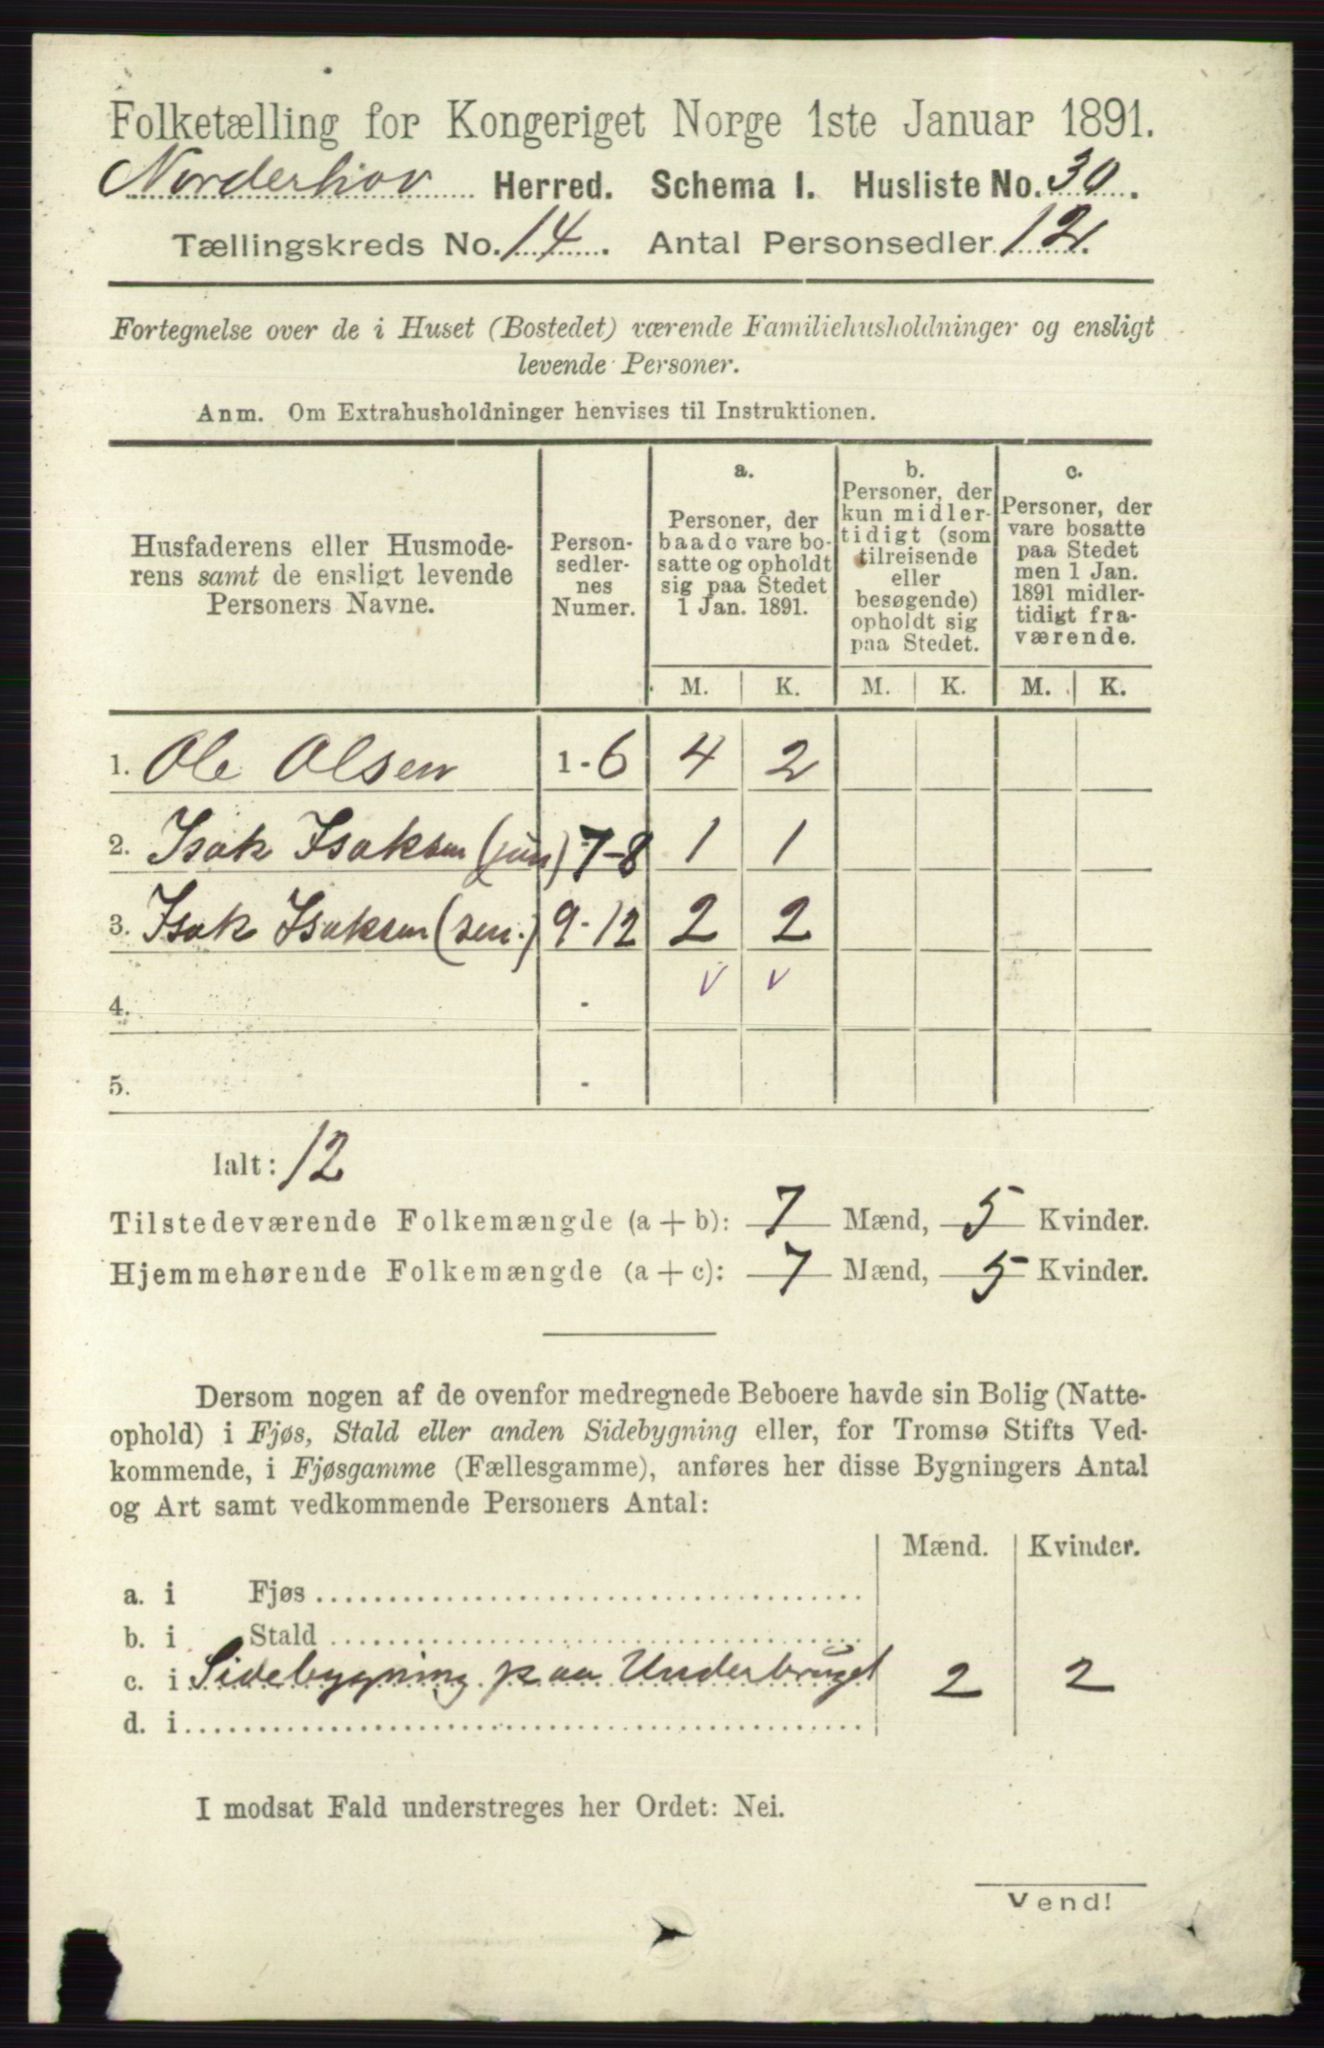 Folketælling for Kongeriget Norge 1ste Januar 1891.
Norderhov Herred. Schema I. Husliste No. 30.
Tællingskreds No. 14. Antal Personsedler 12.
Fortegnelse over de i Huset (Bostedet) værende Familiehusholdninger og ensligt
levende Personer.
Anm. Om Extrahusholdninger henvises til Instruktionen.
Husfaderens eller Husmode-
rens samt de ensligt levende
Personers Navne.
Person-
sedler-
nes
Numer.
a.
Personer, der
baade vare bo-
satte og opholdt
sig paa Stedet
1 Jan. 1891.
b.
Personer, der
kun midler-
tidigt (som
tilreisende
eller
besøgende)
opholdt sig
paa Stedet.
c.
Personer, der
vare bosatte
paa Stedet
men 1 Jan.
1891 midler-
tidigt fra-
værende.
M. K. M. K. M. K.
1. Ole Olsen 1-6 4 2
2. Isak Isaksen (jun) 7-8 1 1
3. Isak Isaksen (sen.) 9-12 2 2
v v
4. -
5. -
Ialt: 12
Tilstedeværende Folkemængde (a + b): 7 Mænd, 5 Kvinder.
Hjemmehørende Folkemængde (a + c): 7 Mænd, 5 Kvinder.
Dersom nogen af de ovenfor medregnede Beboere havde sin Bolig (Natte-
ophold) i Fjøs, Stald eller anden Sidebygning eller, for Tromsø Stifts Ved-
kommende, i Fjøsgamme (Fællesgamme), anføres her disse Bygningers Antal
og Art samt vedkommende Personers Antal:
Mænd. Kvinder.
a. i Fjøs
b. i Stald
c. i Sidebygning paa Underbruget 2 2
d. i
I modsat Fald understreges her Ordet: Nei.
Vend!